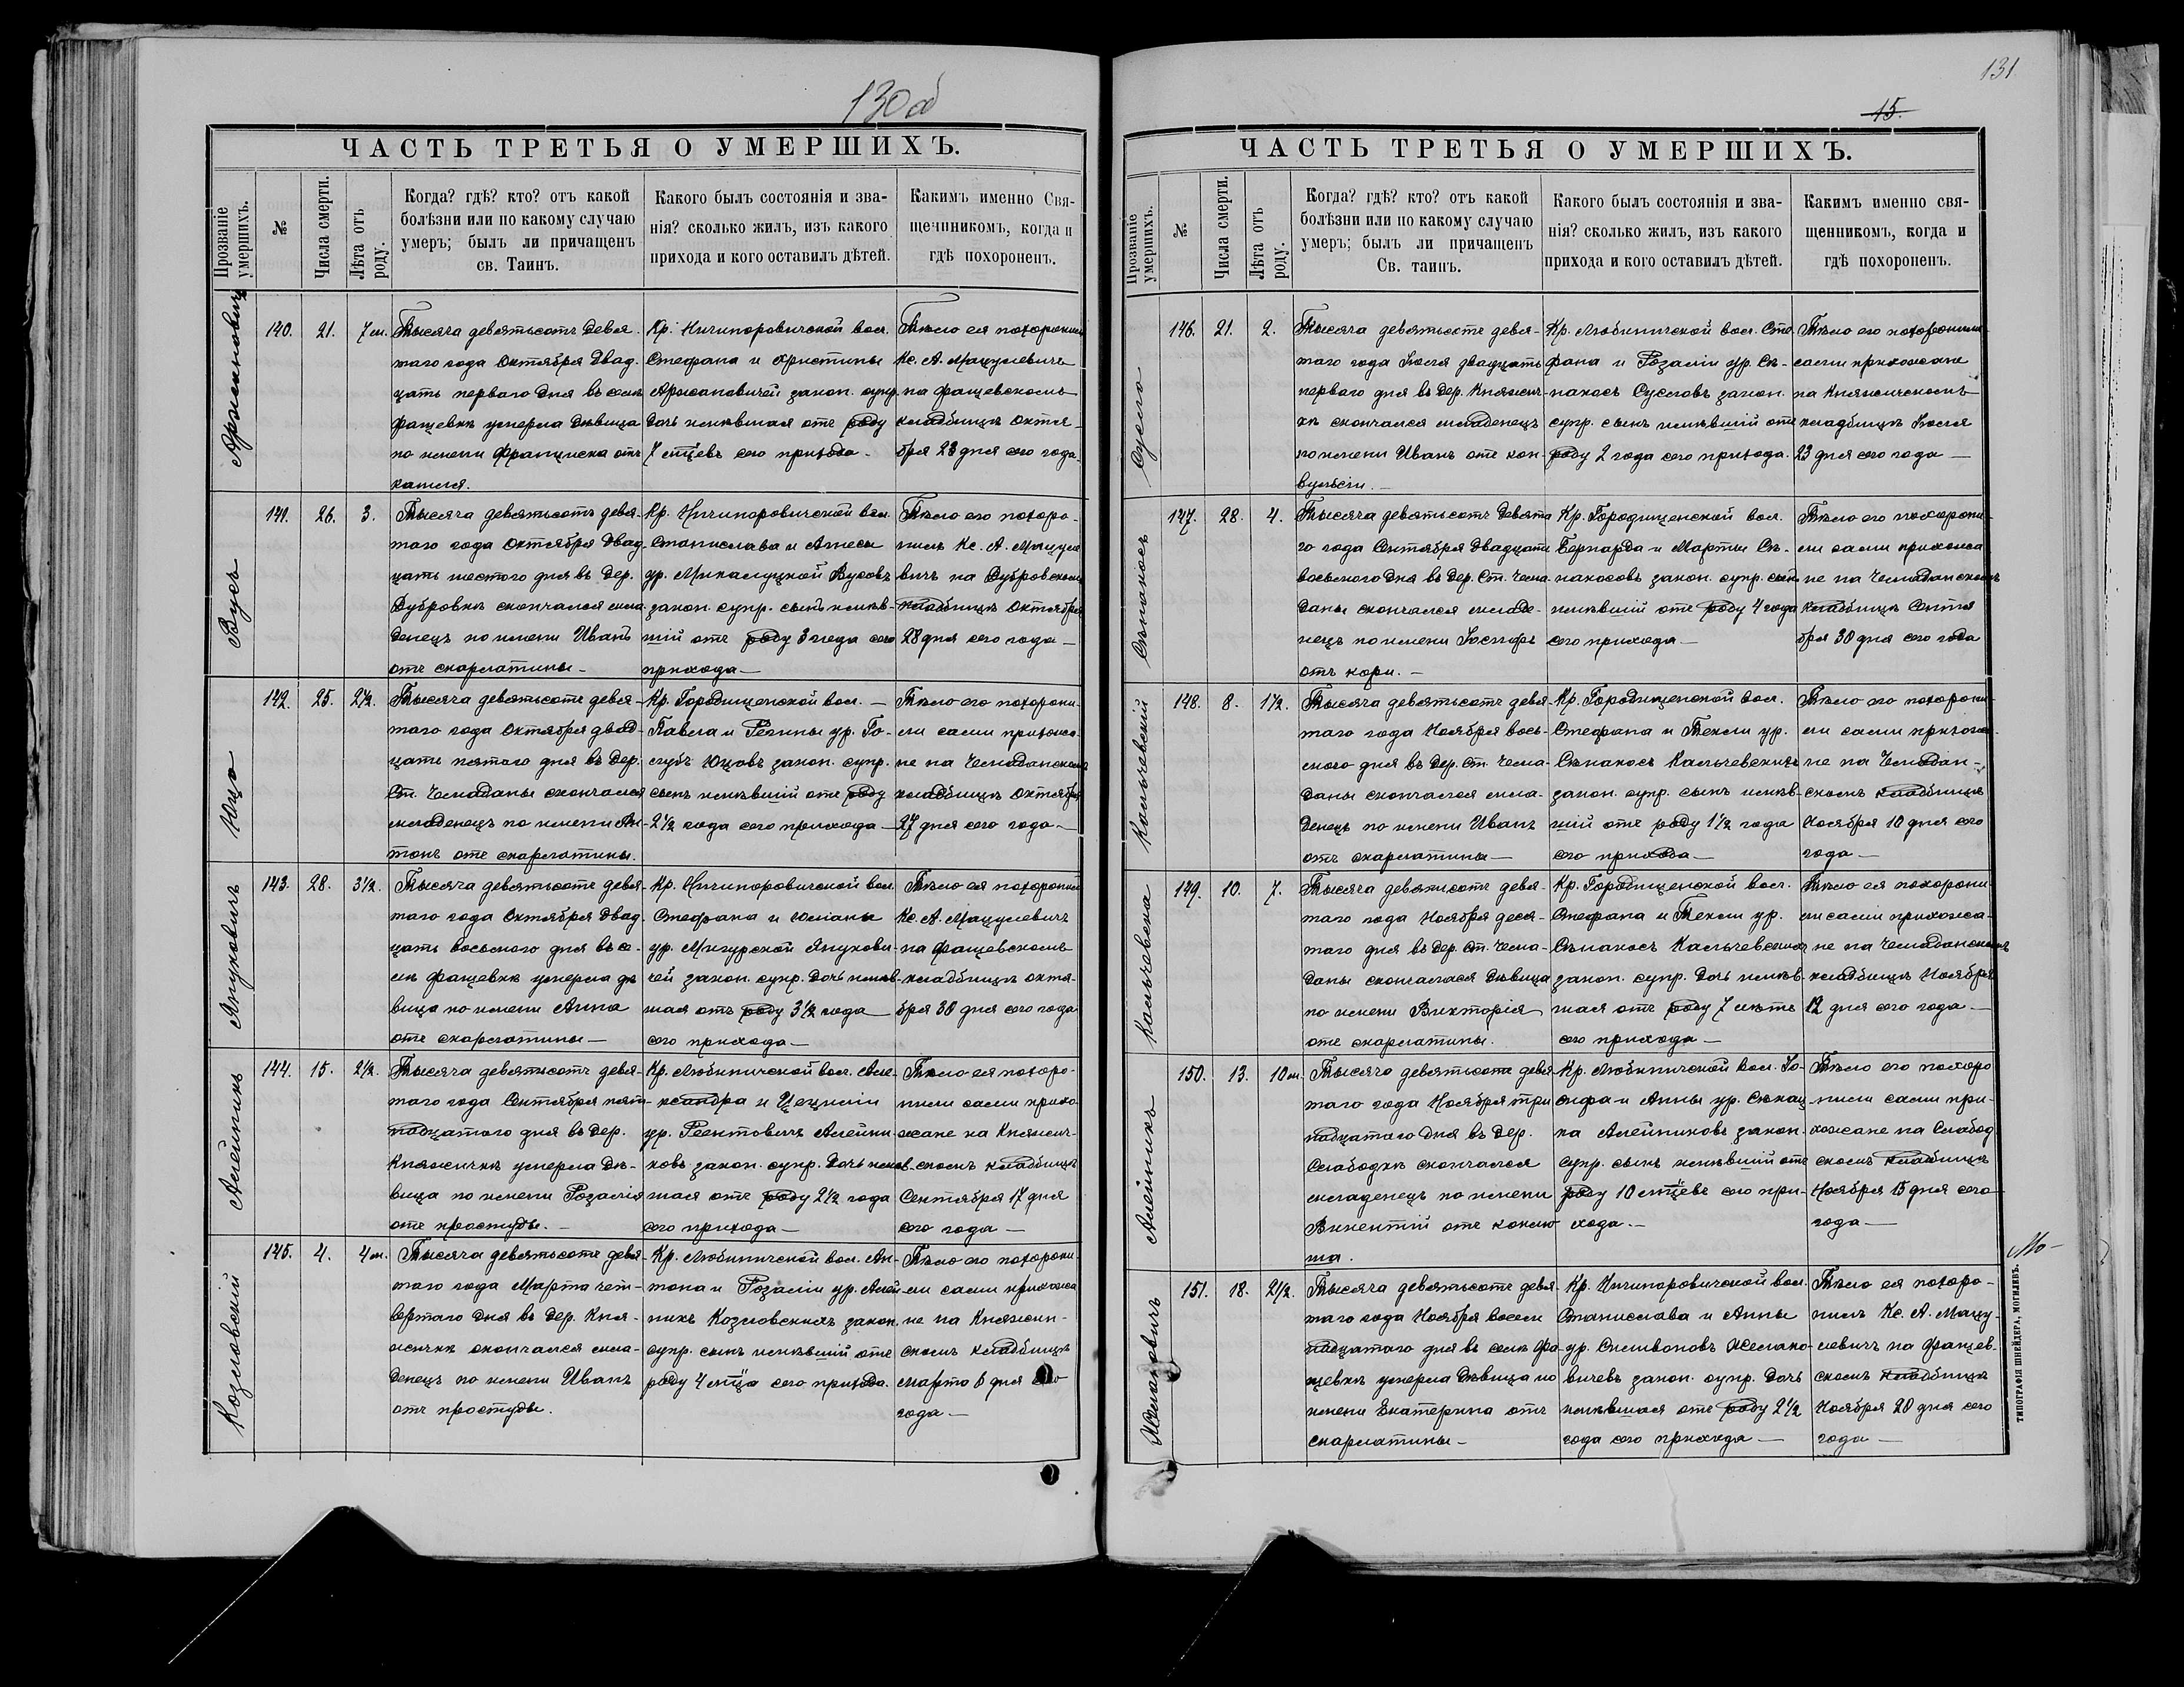 130об
ЧАСТЬ ТРЕТЬЯ О УМЕРШИХЪ.
Прозваніе умершихъ.
№
Числа смерти.
Лѣта отъ роду.
Когда? гдѣ? кто? отъ какой
болѣзни или по какому случаю
умеръ; былъ ли причащенъ
св. Таинъ.
Какого былъ состоянія и зва-
нія? сколько жилъ, изъ какого
прихода и кого оставилъ дѣтей.
Какимъ именно Свя-
щенникомъ, когда и
гдѣ похороненъ.
140. 21. 7 м.
Тысяча девятьсотъ девя-
таго года Октября двад-
цать перваго дня въ селѣ
Фащевкѣ умерла дѣвица
по имени Франциска отъ
кашля.
Кр. Ничипоровичской вол.
Стефана и Христины
закон. супр.
дочь имѣвшая отъ роду
7 мѣцевъ сего прихода.
Тѣло ея похоронилъ
Кс. А. Мацулевичъ
на Фащевскомъ
кладбищѣ Октя-
бря 23 дня сего года.
Вусъ
141. 26. 3.
Тысяча девятьсотъ девя-
таго года Октября двад-
цать шестого дня въ дер.
Дубровкѣ скончался мла-
денецъ по имени Иванъ
отъ скарлатины—
Кр. Ничипоровичской вол.
Станислава и Агнесы
ур. Микалуцкой Вусовъ
закон. супр. сынъ имѣв-
шій отъ роду 3 года сего
прихода—
Тѣло его похоро-
нилъ Кс. А. Мацуле
вичъ на Дубровскомъ
кладбищѣ Октября
28 дня сего года—
Юцо
142. 25. 2½.
Тысяча девятьсотъ девя-
таго года Октября двад-
цать пятаго дня въ дер.
Ст. Чемоданы скончался
младенецъ по имени Ан-
тонъ отъ скарлатины.
Кр. Городищенской вол.—
Павла и Регины ур. Го-
лубъ Юцовъ закон. супр.
сынъ имѣвшій отъ роду
2½ года сего прихода—
Тѣло его похорони-
ли сами прихожа-
не на Чемоданскомъ
кладбищѣ Октября
27 дня сего года—
Януковичъ
143. 28. 3½.
Тысяча девятьсотъ девя-
таго года Октября двад-
цать восьмого дня въ се-
лѣ Фащевкѣ умерла дѣ
вица по имени Анна
отъ скарлатины—
Кр. Ничипоровичской вол.
Стефана и Юліаны
ур. Мигурской Янукови-
чей закон. супр. дочь имѣв-
шая отъ роду 3½ года
сего прихода—
Тѣло ея похоронилъ
Кс. А. Мацулевичъ
на Фащевскомъ
кладбищѣ Октя-
бря 30 дня сего года
Алейникъ
144. 15. 2½.
Тысяча девятьсотъ девя-
таго года Сентября пят-
надцатаго дня въ дер.
Княжичкѣ умерла дѣ-
вица по имени Розалія
отъ простуды.—
Кр. Любиничской вол. Але-
ксандра и Цециліи
ур. Реентовичъ Алейни-
ковъ закон. супр. дочь имѣв-
шая отъ роду 2½ года
сего прихода—
Тѣло ея похоро-
нили сами прихо-
жане на Княжич-
скомъ кладбищѣ
Сентября 17 дня
сего года—
Козловскій
145. 4. 4 м.
Тысяча девятьсотъ девя-
таго года Марта чет-
вертаго дня въ дер. Кня-
жичкѣ скончался мла-
денецъ по имени Иванъ
отъ простуды.
Кр. Любиничской вол. Ан-
тона и Розаліи ур. Алей-
никъ Козловскихъ закон.
супр. сынъ имѣвшій отъ
роду 4 мѣца сего прихода.
Тѣло его похорони-
ли сами прихожа
не на
скомъ кладбищѣ
Марта 6 дня сего
года—
131
15.
ЧАСТЬ ТРЕТЬЯ О УМЕРШИХЪ.
Прозваніе умершихъ.
№
Числа смерти.
Лѣта отъ роду.
Когда? гдѣ? кто? отъ какой
болѣзни или по какому случаю
умеръ; былъ ли причащенъ
Св. таинъ.
Какого былъ состоянія и зва-
нія? сколько жилъ, изъ какого
прихода и кого оставилъ дѣтей.
Какимъ именно свя-
щенникомъ, когда и
гдѣ похороненъ.
146. 21. 2.
Тысяча девятьсотъ девя-
таго года Іюля двадцать
перваго дня въ дер. Княжич-
кѣ скончался младенецъ
по имени Иванъ отъ кон-
вульсіи.—
Кр. Любиничской вол. Сте-
фана и Розаліи ур. Сѣ-
накосъ закон.
супр. сынъ имѣвшій отъ
роду 2 года сего прихода.
Тѣло его похоронили
сами прихожане
на Княжичскомъ
кладбищѣ Іюля
23 дня сего года—
Сѣнакосъ
147. 28. 4.
Тысяча девятьсотъ девята
го года Сентября двадцать
восьмого дня въ дер. Ст. Чемо-
даны скончался младе-
нецъ по имени Іосифъ
отъ кори.—
Кр. Городищенской вол.
Бернарда и Марты Сѣ-
накосовъ закон. супр. сынъ
имѣвшій отъ роду 4 года
сего прихода—
Тѣло его похорони-
ли сами прихожа
не на Чемоданскомъ
кладбищѣ Сентя
бря 30 дня сего года
Кальчевскій
148. 8. 1½.
Тысяча девятьсотъ девя-
таго года Ноября вось-
мого дня въ дер. Ст. Чемо-
даны скончался мла-
денецъ по имени Иванъ
отъ скарлатины—
Кр. Городищенской вол.
Стефана и Теклы ур.
Сѣнакосъ Кальчевскихъ
закон. супр. сынъ имѣв-
шій отъ роду 1½ года
сего прихода—
Тѣло его похорони-
ли сами прихожа-
не на Чемодан-
скомъ кладбищѣ
Ноября 10 дня сего
года—
Кальчевска
149. 10. 7.
Тысяча девятьсотъ девя-
таго года Ноября деся-
таго дня въ дер. Ст. Чемо-
даны скончалася дѣвица
по имени Викторія
отъ скарлатины.
Кр. Городищенской вол.
Стефана и Теклы ур.
Сѣнакосъ Кальчевскихъ
закон. супр. дочь имѣв-
шая отъ роду 7 лѣтъ
сего прихода—
Тѣло ея похорони-
ли сами прихожа-
не на Чемоданскомъ
кладбищѣ Ноября
12 дня сего года—
Алейникъ
150. 13. 10 м.
Тысяча девятьсотъ девя-
таго года Ноября три
надцатаго дня въ дер.
Слабодкѣ скончался
младенецъ по имени
Викентій отъ коклю
ша.
Кр. Любиничской вол. Іо-
сифа и Анны ур.
Алейниковъ закон.
супр. сынъ имѣвшій отъ
роду 10 мѣцевъ сего при-
хода.—
Тѣло его похоро
нили сами при-
хожане на Слабод
скомъ кладбищѣ
Ноября 15 дня сего
года—
151. 18. 2½.
Тысяча девятьсотъ девя-
таго года Ноября восем
надцатаго дня въ селѣ Фа-
щевкѣ умерла дѣвица по
имени Екатерина отъ
скарлатины—
Кр. Ничипоровичской вол.
Станислава и Анны
ур.
закон. супр. дочь
имѣвшая отъ роду 2½
года сего прихода—
Тѣло ея похоро-
нилъ Кс. А. Мацу-
левичъ на Фащев-
скомъ кладбищѣ
Ноября 20 дня сего
года—
ТИПОГРАФІЯ ШНЕЙДЕРА, МОГИЛЕВЪ.